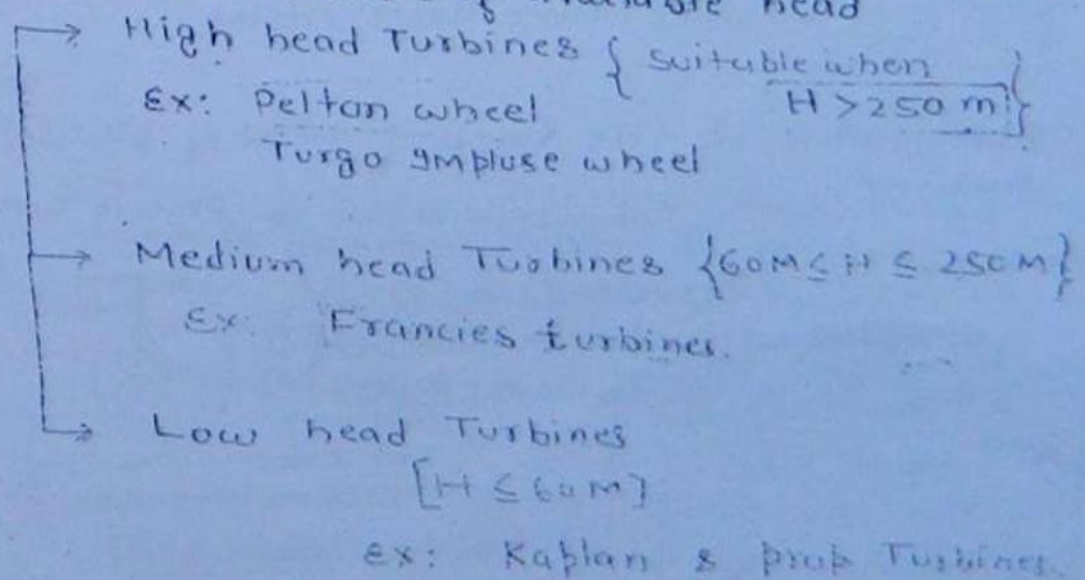 head
→ High head Turbines { Suitable when
H > 250 m }
Ex: Pelton wheel
Turgo Impluse wheel
→ Medium head Turbines {60M ≤ H ≤ 250M}
Ex: Francies turbines.
→ Low head Turbines
[H ≤ 60M]
ex: Kaplan & prop Turbines